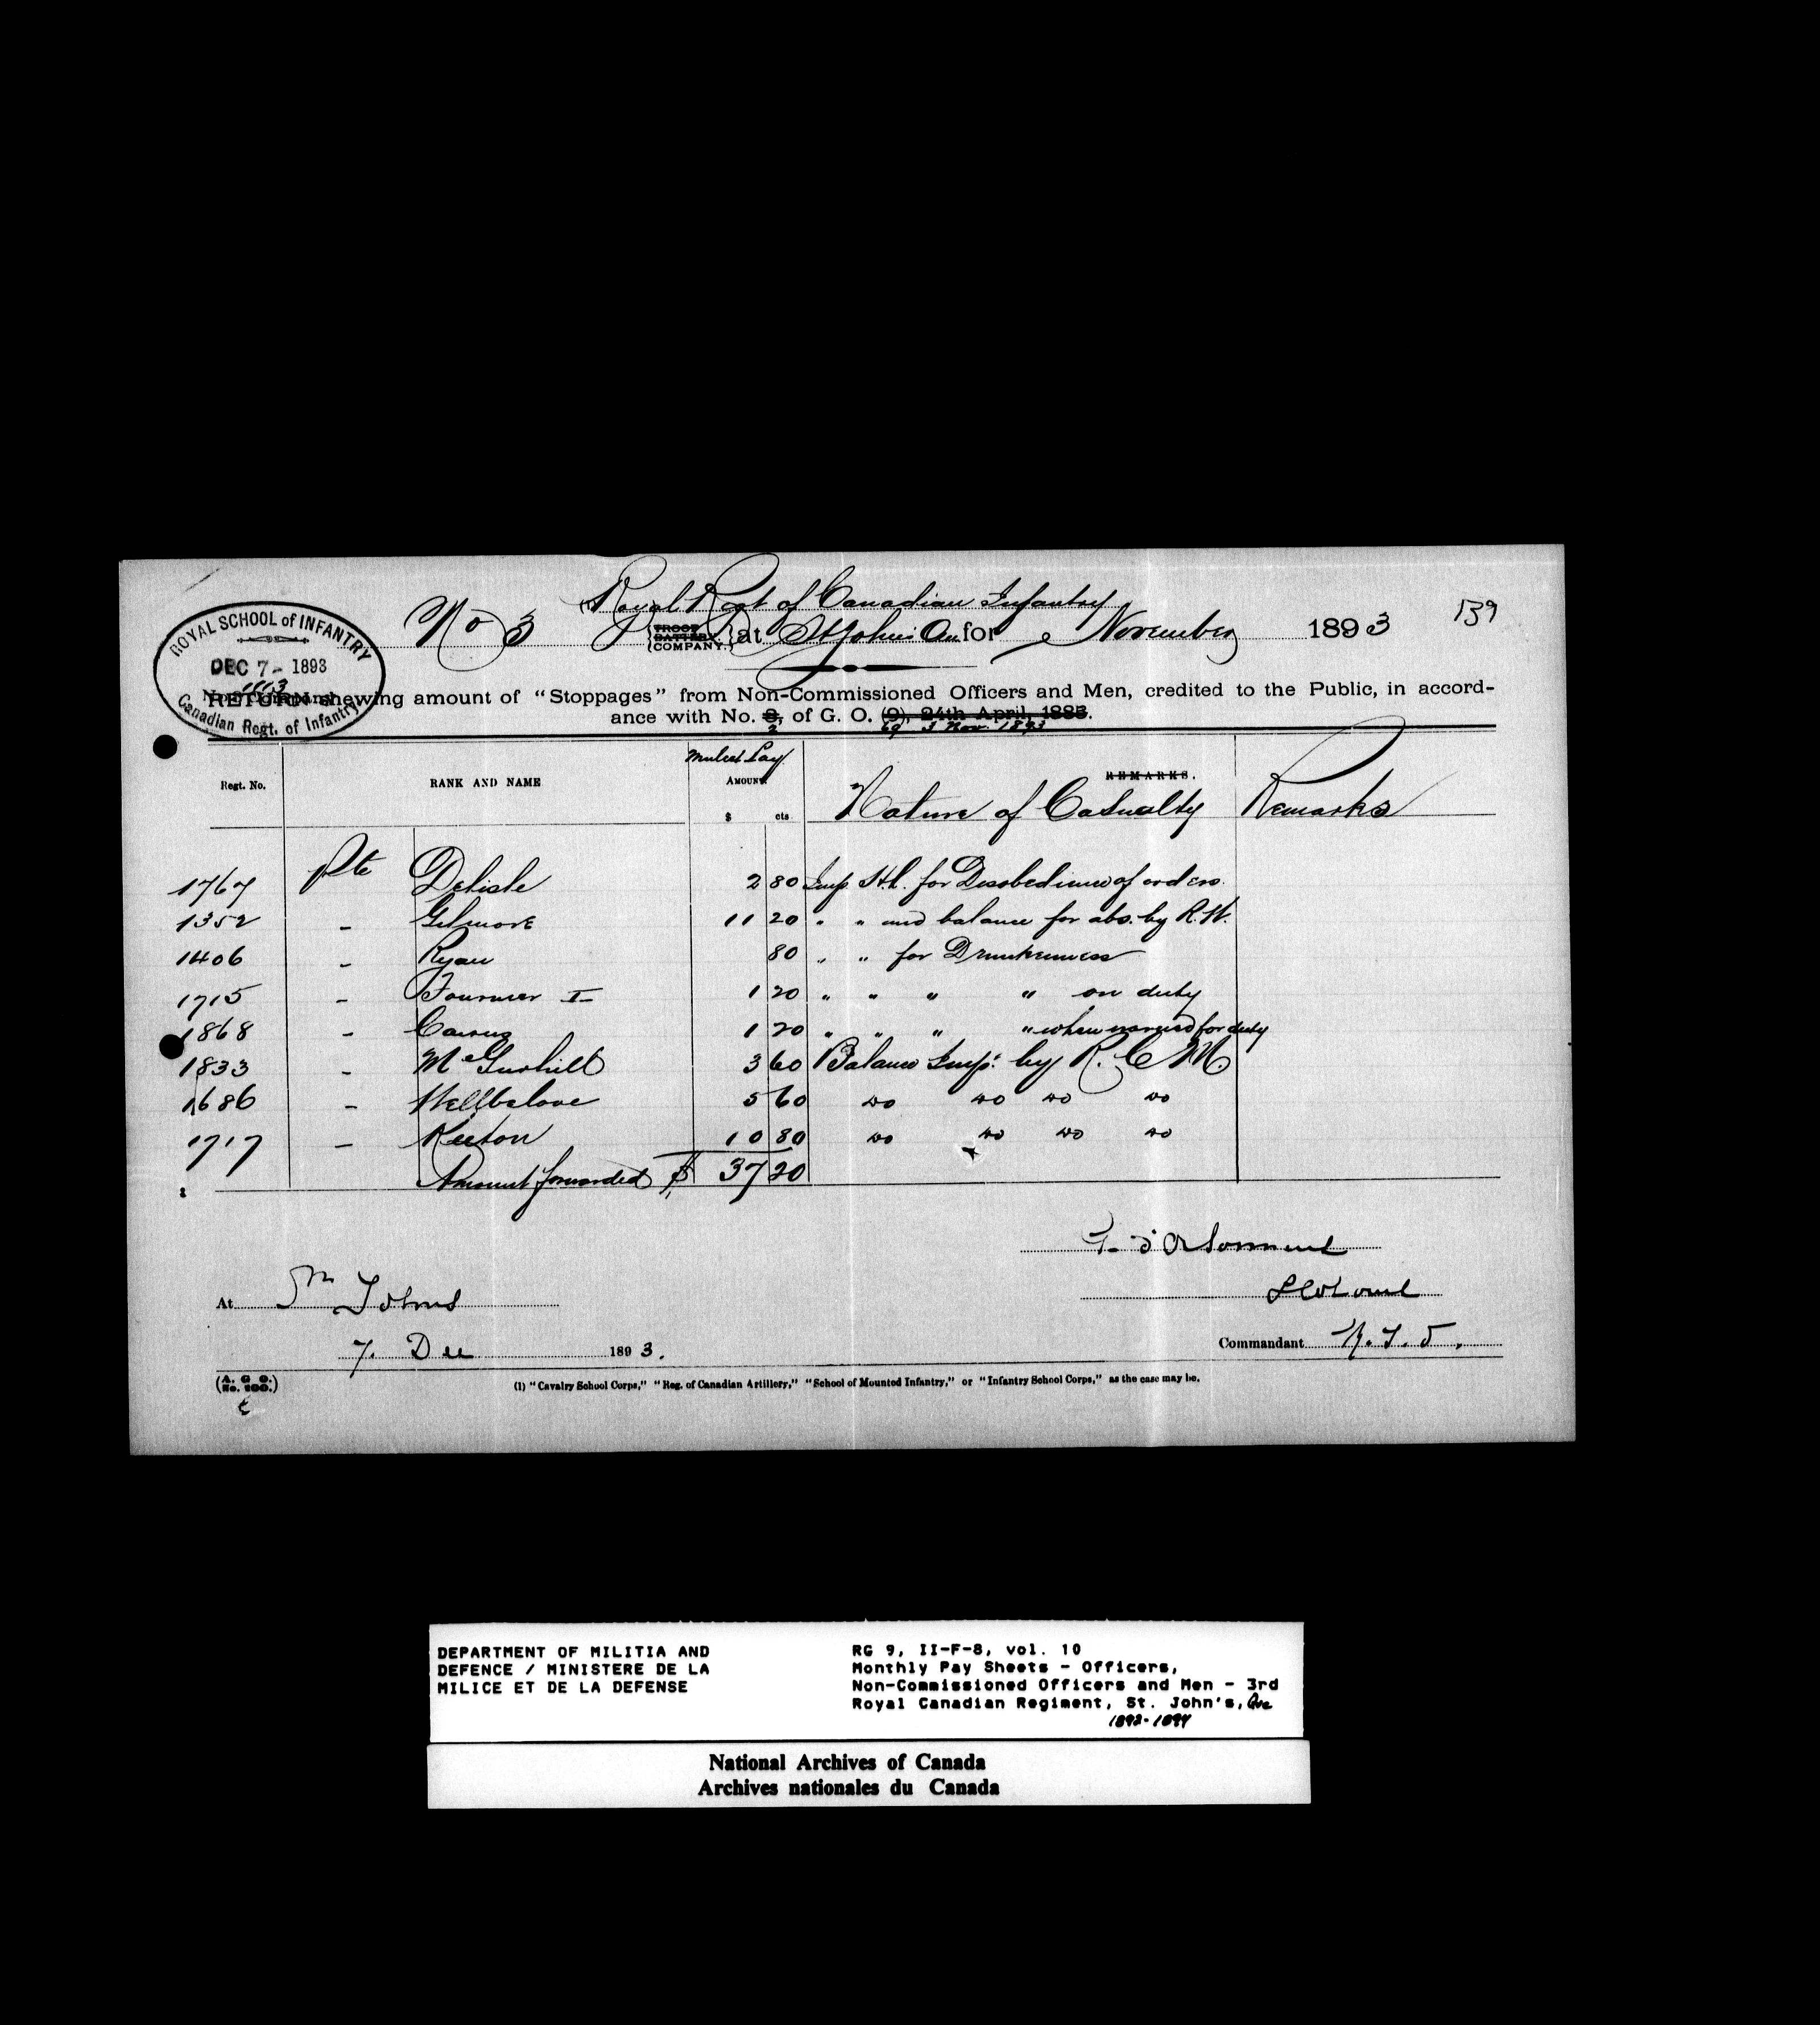 Royal Regt of Canadian Infantry
No 3 {TROOP BATTERY. COMPANY.} at St Johns Que for November 1893
139
ROYAL SCHOOL of INFANTRY
DEC 7 - 1893
1113
No. 3 Company
Canadian Regt. of Infantry
RETURN shewing amount of "Stoppages" from Non-Commissioned Officers and Men, credited to the Public, in accord-
ance with No. 8, of G. O. (9), 24th April, 1885.
2 69 3 Nov. 1893
Regt. No. RANK AND NAME Mulect Pay AMOUNT $ cts REMARKS. Nature of Casualty Remarks
1767 Pte Delisle 2 80 Imp H.L. for Disobedience of orders.
1352 - Gilmore 11 20 " " and balance for abs. by R.W.
1406 - Ryan 80 " " for Drunkenness
1715 - Fournier I 1 20 " " " " on duty
1868 - 1 20 " " " " when warned for duty
1833 - 3 60 Balance Imp: by R. C M.
1686 - Wellbelove 5 60 do do do do
1717 - Keeton 10 80 do do do do
Amount forwarded $ 37 20
G. d'Orsonnens
Lt Colonel
At St Johns
7. Dec 1893.
Commandant R.S.I.
(A. G. O. No. 100.)
(1) "Cavalry School Corps," "Reg. of Canadian Artillery," "School of Mounted Infantry," or "Infantry School Corps," as the case may be.
DEPARTMENT OF MILITIA AND
DEFENCE / MINISTERE DE LA
MILICE ET DE LA DEFENSE
RG 9, II-F-8, vol. 10
Monthly Pay Sheets - Officers,
Non-Commissioned Officers and Men - 3rd
Royal Canadian Regiment, St. John's, Que
1892-1894
National Archives of Canada
Archives nationales du Canada